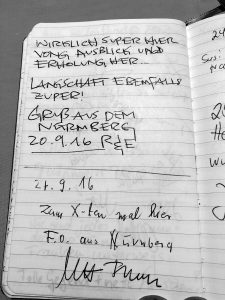 WIRKLICH SUPER HIER
VONG AUSBLICK UND
ERHOLUNG HER...
LANGSCHAFT EBENFALLS
ZUPER!
GRUẞ AUS DEM
NÜRMBERG
20.9.16 R&E
21.9.16
Zum X-ten mal hier
F.O. aus Nürnberg